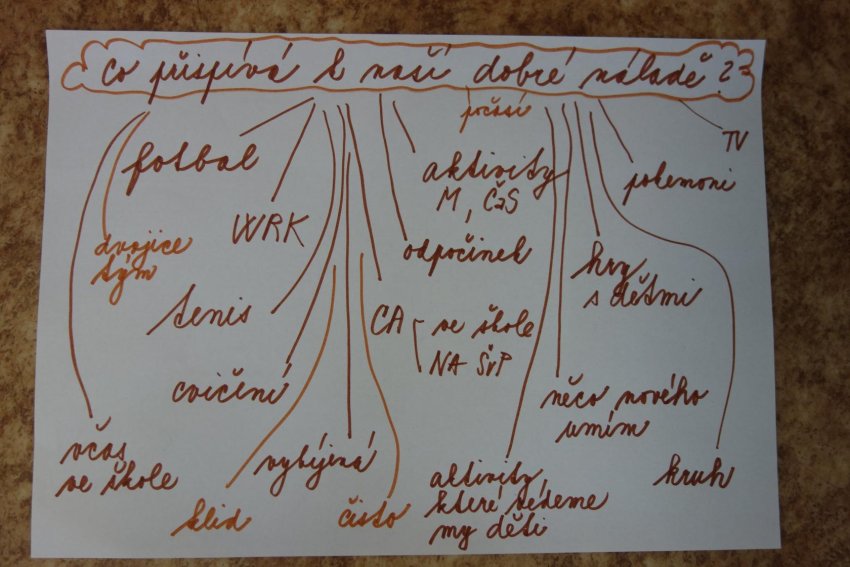 co přispívá k naší dobré náladě?
počasí
TV
fotbal
aktivity
M, ČaS
pokemoni
WRK
dvojice
tým
odpočinek
hry
s dětmi
tenis
CA
ve škole
NA ŠvP
cvičení
něco nového
umím
včas
ve škole
vybíjená
aktivity,
které vedeme
my děti
kruh
klid
čisto